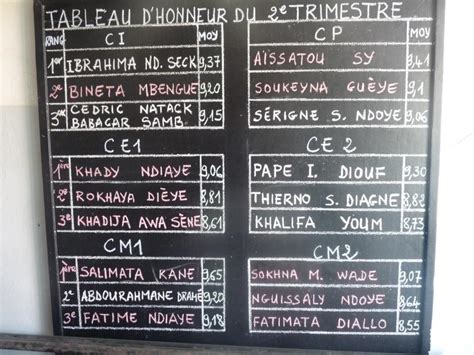 TABLEAU D'HONNEUR DU 2e TRIMESTRE
RANG CI MOY
1er IBRAHIMA ND. SECK 9,37
2e BINETA MBENGUE 9,20
3e CEDRIC NATACK
BABACAR SAMB 9,15
CP MOY
AÏSSATOU SY 9,41
SOUKEYNA GUÈYE 9,1
SÉRIGNE S. NDOYE 9,06
CE1
1ère KHADY NDIAYE 9,06
2e ROKHAYA DIÈYE 8,81
3e KHADIJA AWA SÈNE 8,61
CE2
PAPE I. DIOUF 9,30
THIERNO S. DIAGNE 8,82
KHALIFA YOUM 8,73
CM1
1ère SALIMATA KANE 9,65
2e ABDOURAHMANE DRAMÉ 9,20
3e FATIME NDIAYE 9,18
CM2
SOKHNA M. WADE 9,07
NGUISSALY NDOYE 8,64
FATIMATA DIALLO 8,55